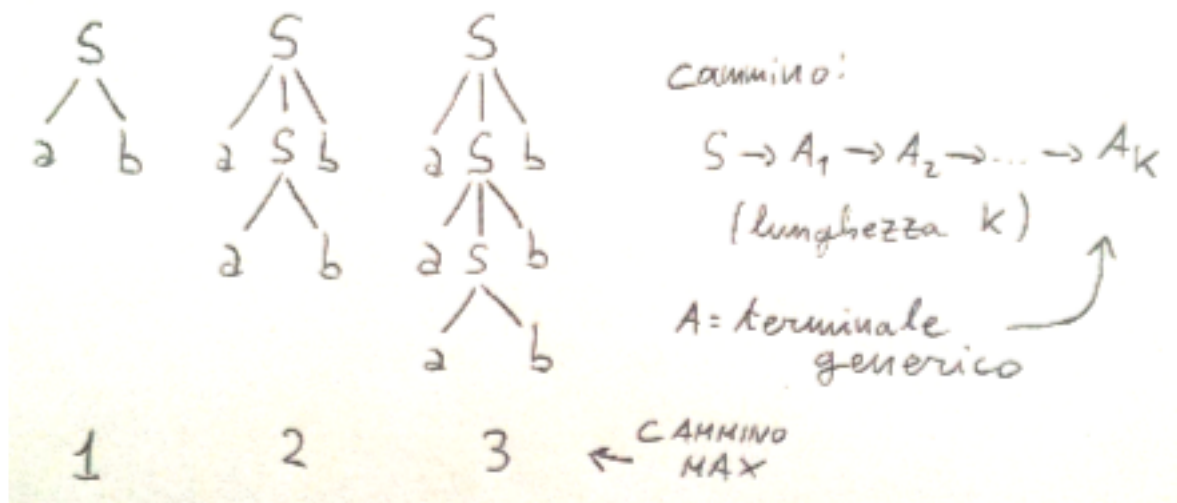 S S S
a b a S b a S b
a b a S b
a b
cammino:
S → A₁ → A₂ → ... → A_K
(lunghezza K)
A = terminale
generico
1 2 3 ← CAMMINO
MAX